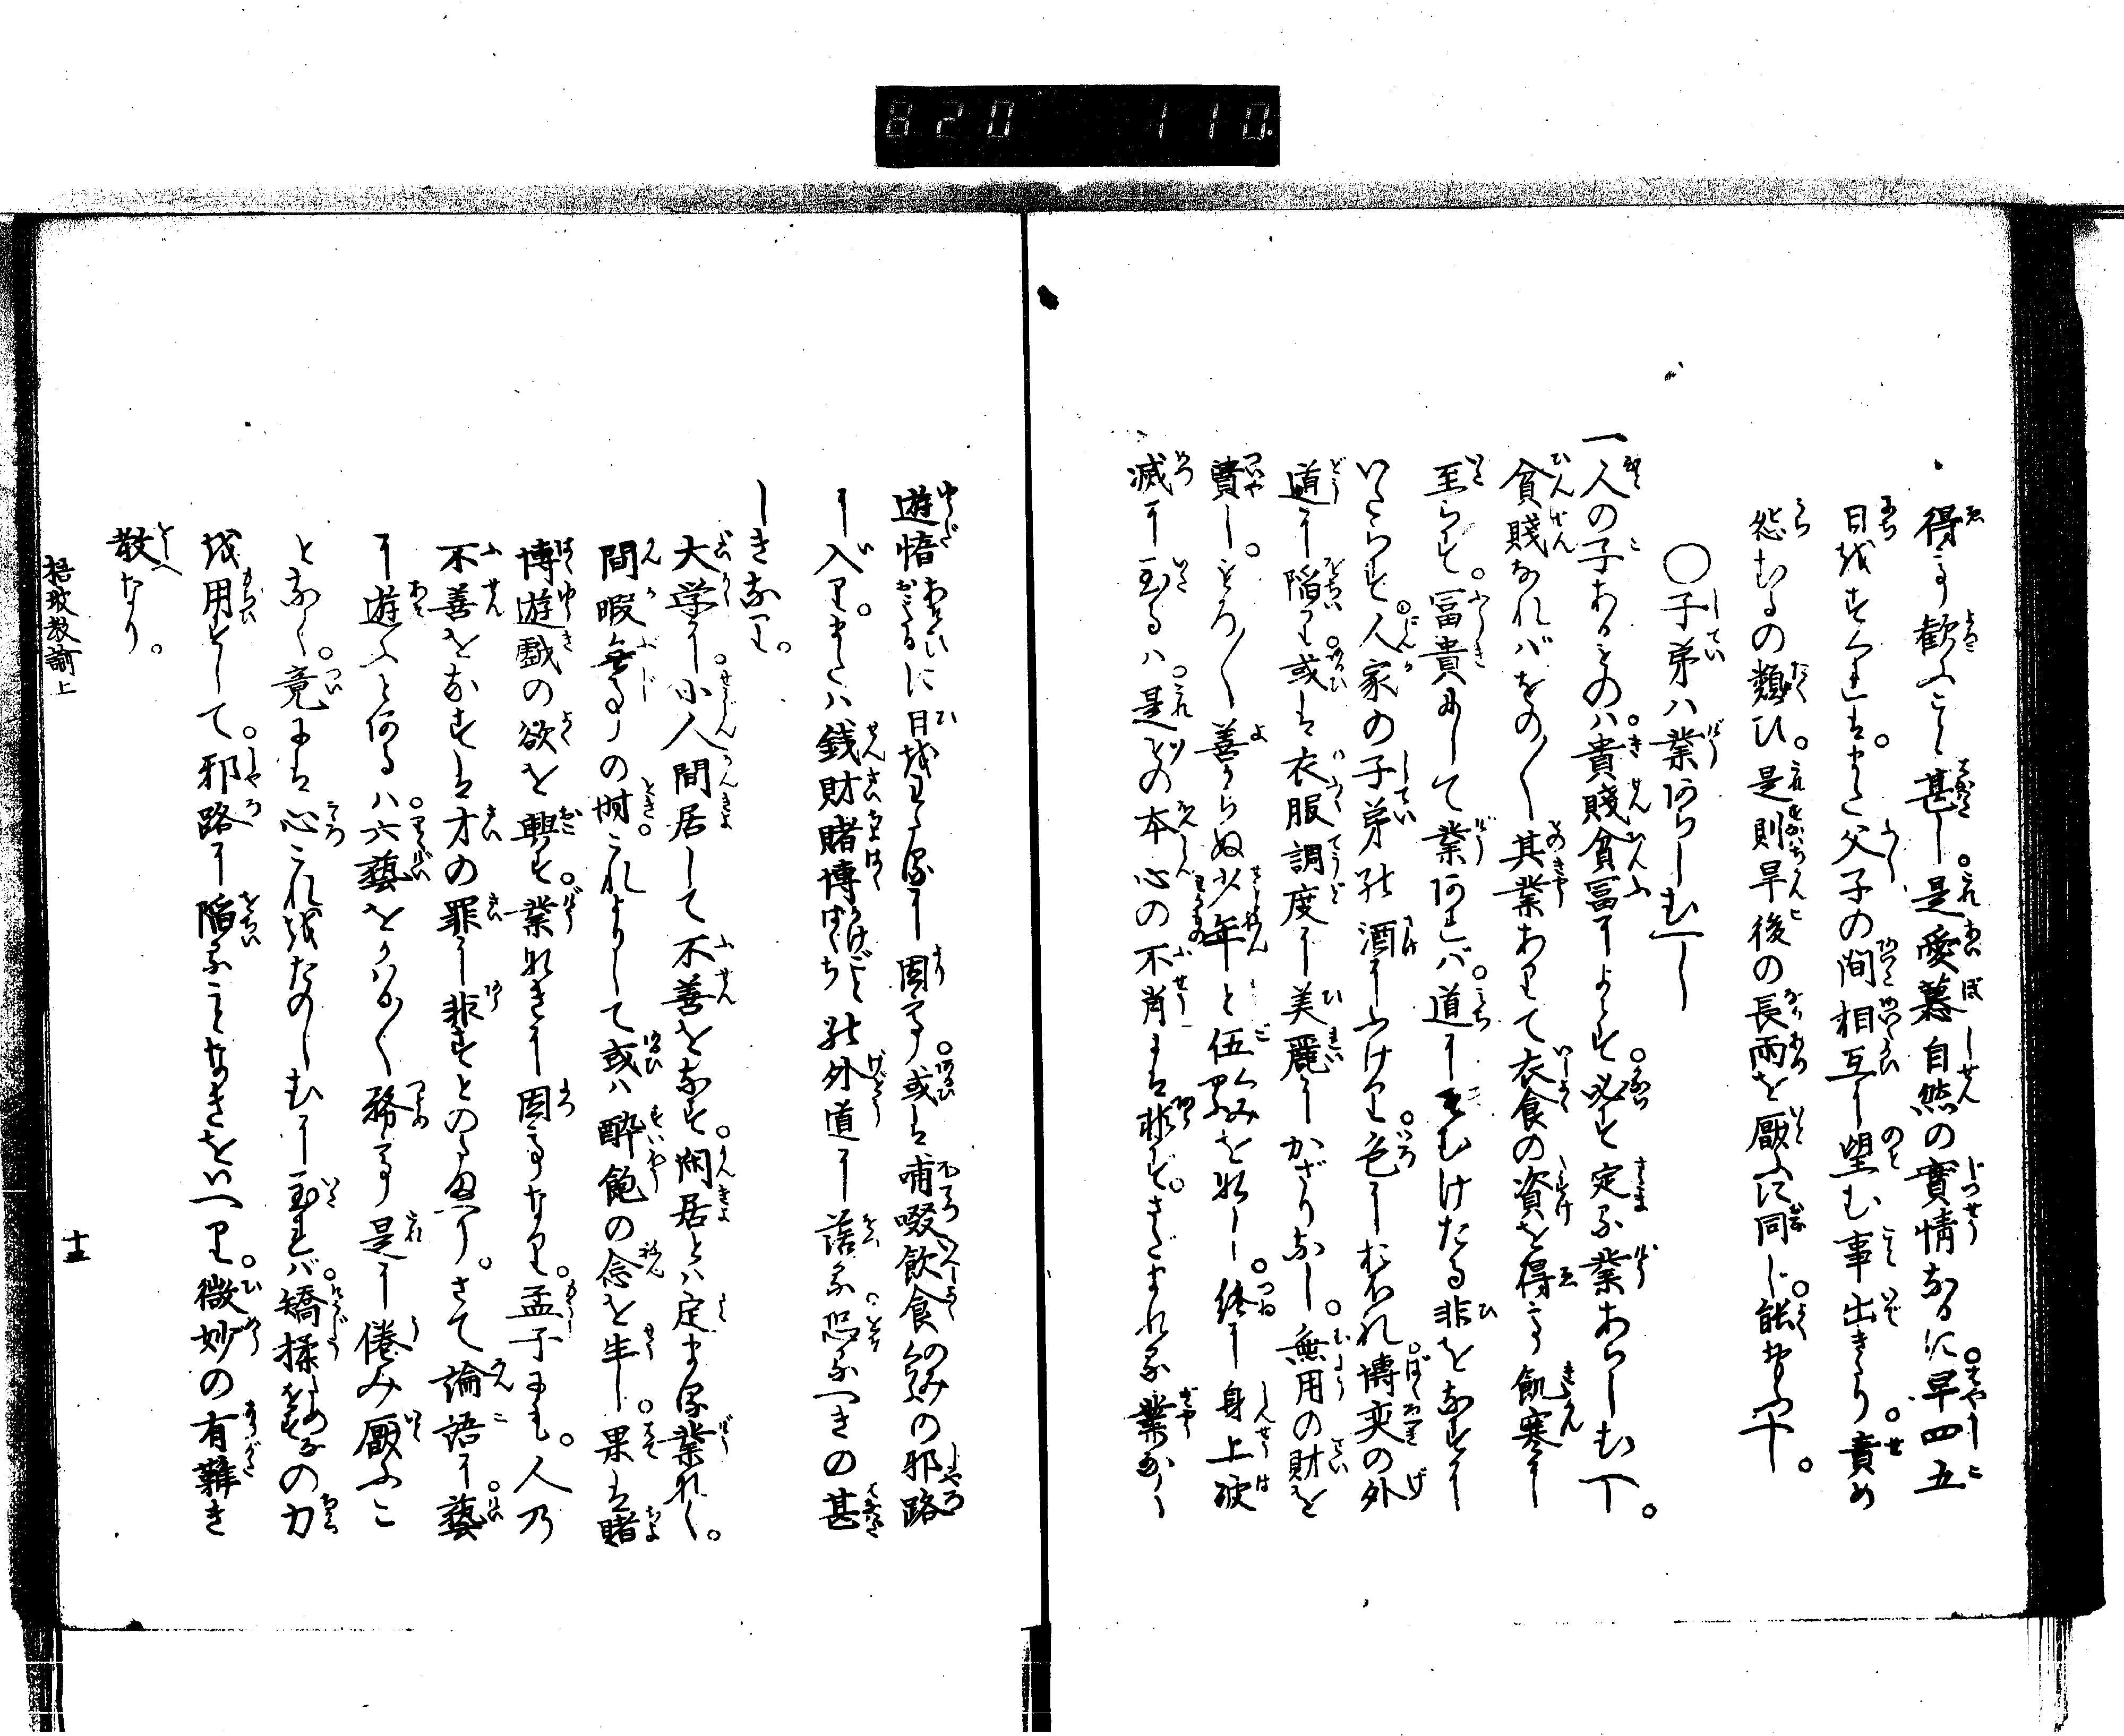 820 110
得る歓ふこと甚し。是愛慕自然の實情なるに早四五
日越すくれは。また父子の間相互に望む事出きたり。責め
怨むるの類ひ。是則旱後の長雨を厭ふに同じ。
〇子弟ハ業あらしむべし
一人の子あるものハ。貴賤貧富によらず。必ず定る業あらしむべし。
貧賤なれバをの〱其業ありて衣食の資を得る飢寒に
至らず。冨貴にして業なけれバ。道にそむけたる非をなすに
いたらず。人家の子弟酒にふけり。色におぼれ。博奕の外
道に陥り。或は衣服調度に美麗にかざりなし。無用の財を
費し。そろ〱善からぬ少年と伍組を結し。終に身上破
滅に至るハ。是もとの本心の不肖には非ず。さだまれる業なく
遊惰に日越わたるに因る。或は哺啜飲食のみの邪路
に入り。または銭財賭博の外道に落る。恐るべきの甚
しきなり。
大学に。小人間居して不善をなす。閑居とハ定まる業なく。
間暇無事の時。これよりして或ハ酔飽の念を生し。果は賭
博遊戯の欲を興す。業なきに因るなり。孟子にも。人乃
不善をなすは才の罪に非ずとのたまへり。さて論語に。藝
に遊ふと有るハ。六藝をかはる〱務る。是に倦み厭ふこ
となく。竟には心これをたのしむに至れバ。矯揉の力
を用ずして。邪路に陥ることなきをいへり。微妙の有難き
教なり。
教諭上
十二